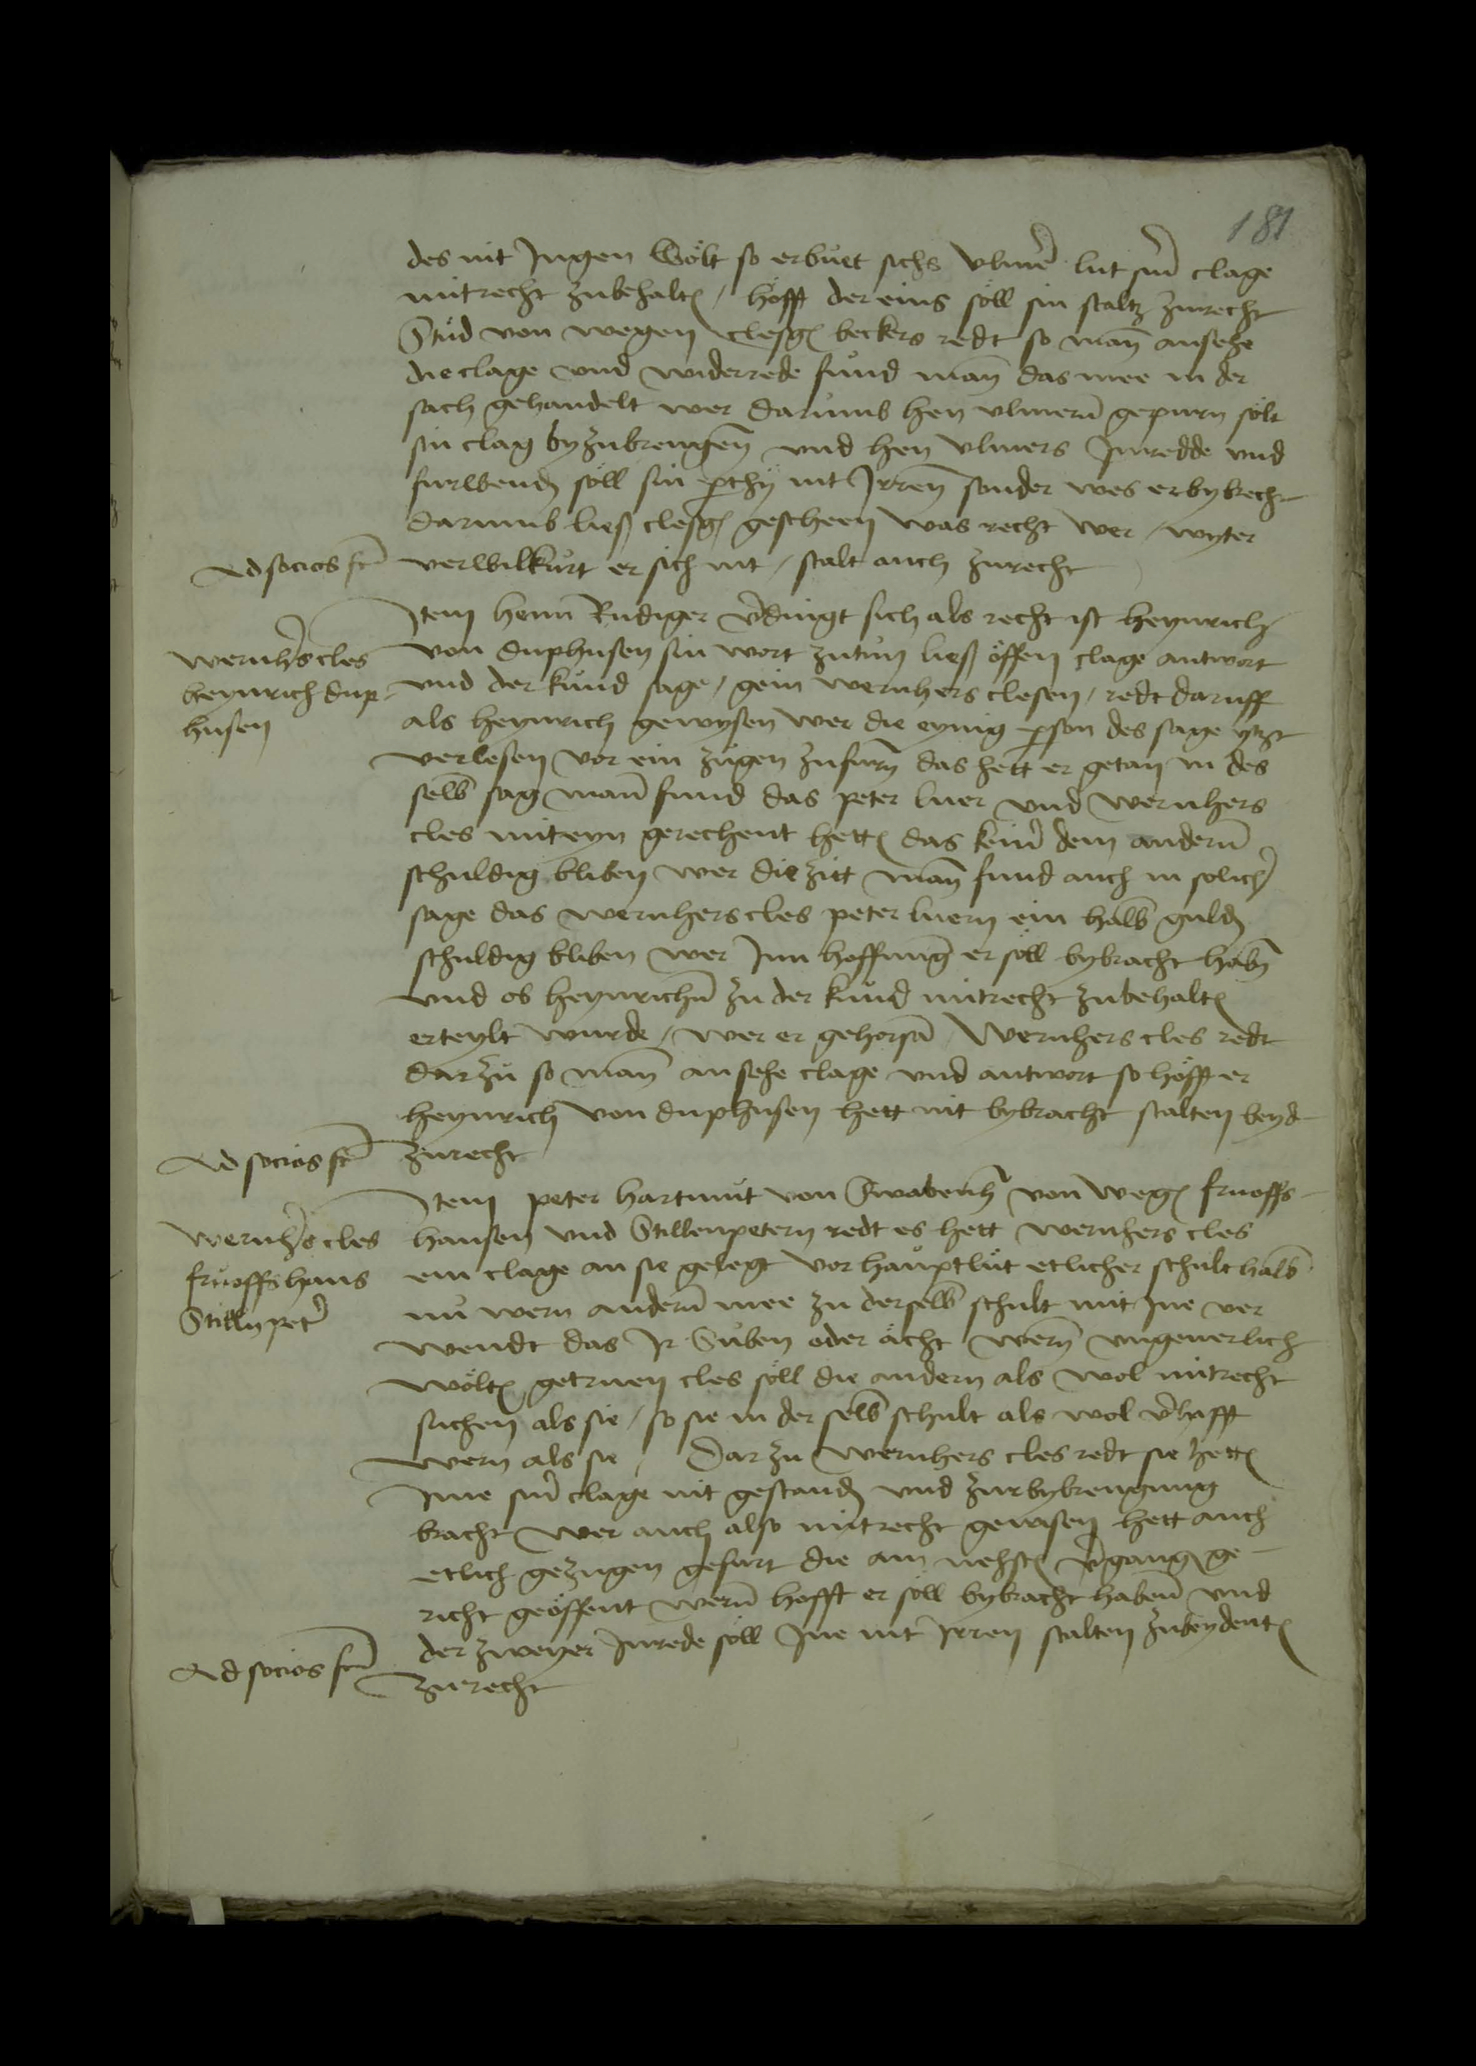 181
des nit Jngen wölt so erbuet sichs Vlmer lut sinr clage
mitrecht zubehalten / höfft der eins söll sin stalt zurecht
Stůd von wegen Clesgen beckers redt so man ansehe
die clage vnd widerrede fund man das mee in der
sach gehandelt wer darumb hen vlmern gepurn sölt
sin clag byzubrengen vnd hen vlmers Jnredde vnd
furwenden söll sin parthy nit Jrren sonder wes er bybrecht
darumb ließ clesgen gescheen was recht wer / wyter
Ad socios factum
verwilkurt er sich nit / stalt auch zurecht
Wernhers cles
heynrich dup-
husen
Jtem henn Rudiger verdingt sich als recht ist heynrich
von duphusen sin wort zutun ließ öffen clage antwort
vnd der kund sage / gein wernhers clesen / redt daruff
als heynrich gewysen wer die eynig person des sage ytzt
verlesen vor ein zugen zufurn das hett er getan in des
selben sag man fund das peter luer vnd wernhers
cles miteyn gerechent hetten das keinr dem andern
schuldig bliben wer die zitt man fund auch in solicher
sage das wernhers cles peter luern ein halben gulden
schuldig bliben wer Jnn hoffnung er söll bybracht haben
vnd ob heynrichen zu der kund mitrecht zubehalten
erteylt wurde / wer er gehorsam / Wernhers cles redt
darzu so man ansehe clage vnd antwort so höfft er
heynrich von duphusen hett nit bybracht stalten beyd
Ad socios factum
zurecht
Wernhers cles
fruoffshans
Stillnpeter
Jtem peter hartmut von Swabenheim von wegen fruoffs-
hansen vnd Stillenpetern redt es hett wernhers cles
ein clage an sie gelegt vor hauptlut etlicher schult halb
nu wern andern mee zu derselben schult mit Jne ver
wendt das Jr Suben oder acht wern vngeuerlich
wölten getruen cles söll die andern als wol mitrecht
suchen als sie / so sie in der selben schult als wol verhafft
wern als sie / Dar zu wernhers cles redt sie hetten
Jme sinr clage nit gestanden vnd zur bybrengung
bracht wer auch also mitrecht gewisen hett auch
etlich gezugen gefurt die am nehsten vergangen ge-
richt geöffent wern hofft er söll bybracht haben vnd
der zweyer Jnrede söll Jne nit Jrren stalten zubeydenten
Ad socios factum
zurecht